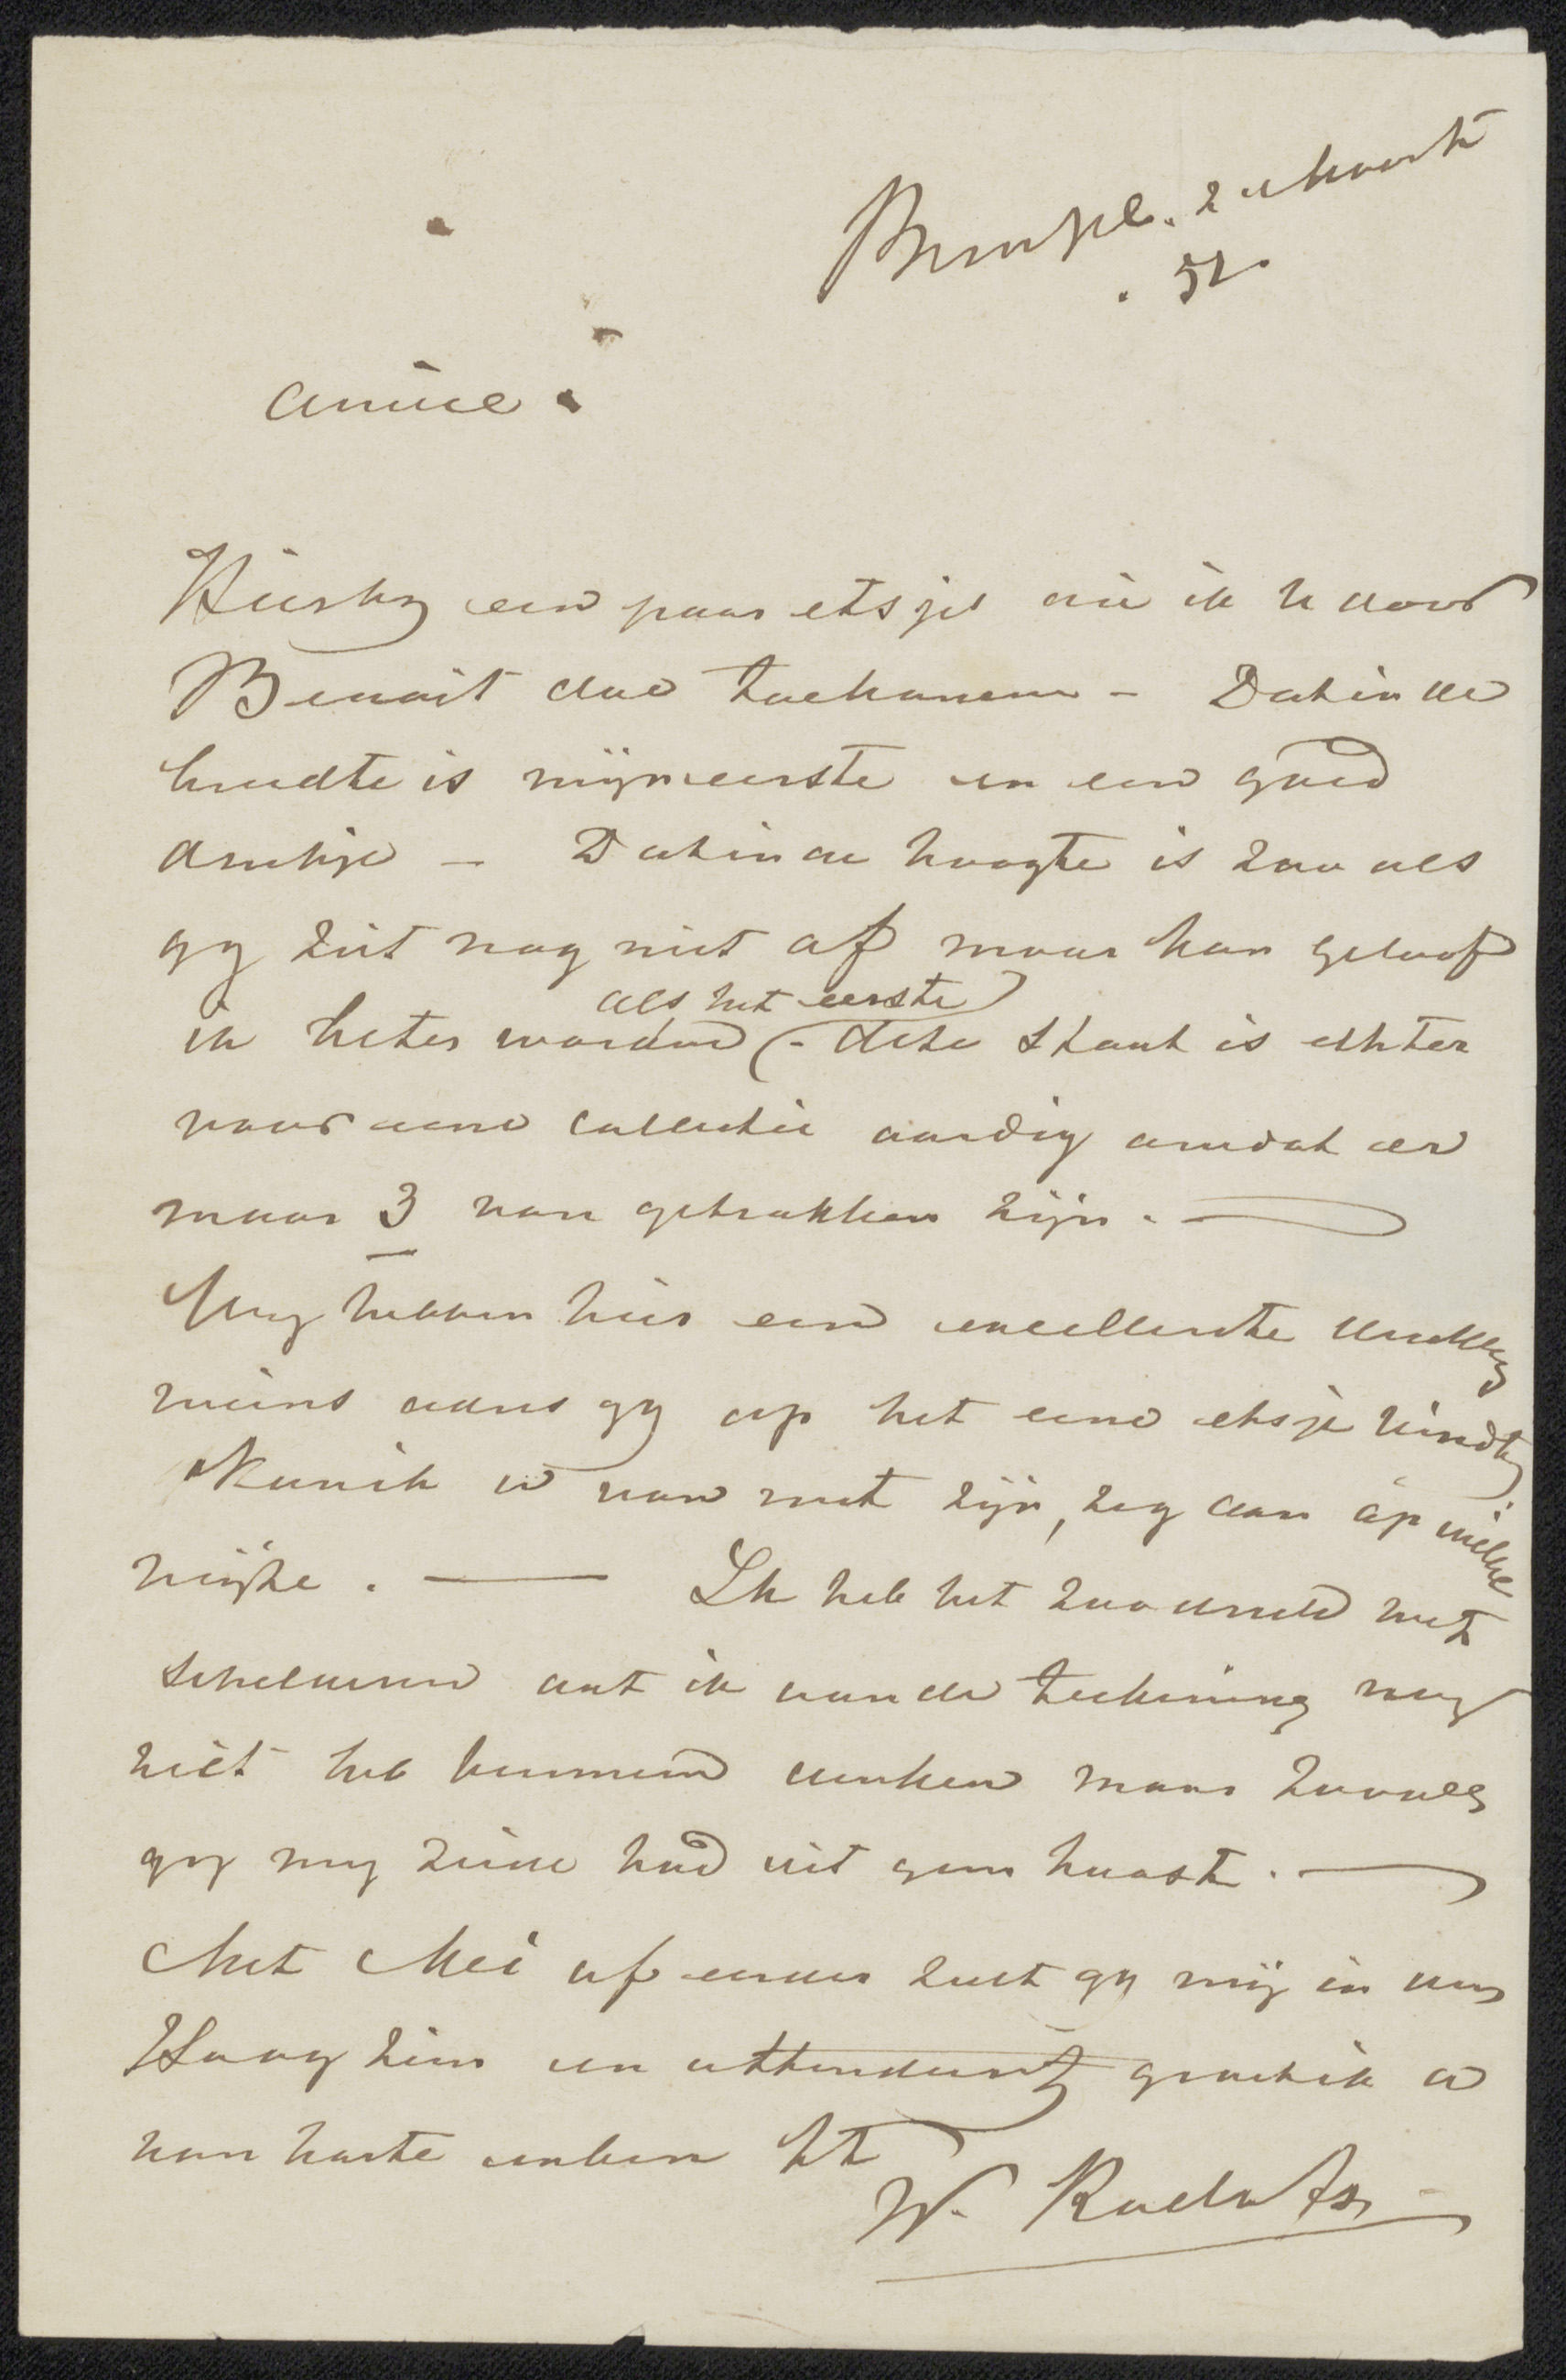 Brussel. 2 Maart
. 52.
Amice.
Hierby een paar etsjes die ik U door
Benoit doe toekomen - Dat in de
breedte is mijn eerste en een goed
drukje - Dat in de hoogte is zoo als
gy ziet nog niet af maar kan geloof
ik beter worden (als het eerste) - deze staat is echter
voor eene collectie aardig omdat er
maar 3 van getrokken zijn. —
Wy hebben hier een excellente
waars gy op het eene etsje vindt,
Kan ik U van nut zijn, zeg dan op welke
wijze. — Ik heb het zoo druk met
schilderen dat ik aan de teekening nog
niet heb kunnen denken maar zooals
gy my zeide had dit geen haast. —
Met Mei of eerder zult gy mij in den
Haag zien en attendant groet ik U
van harte tt
W. Roelofs